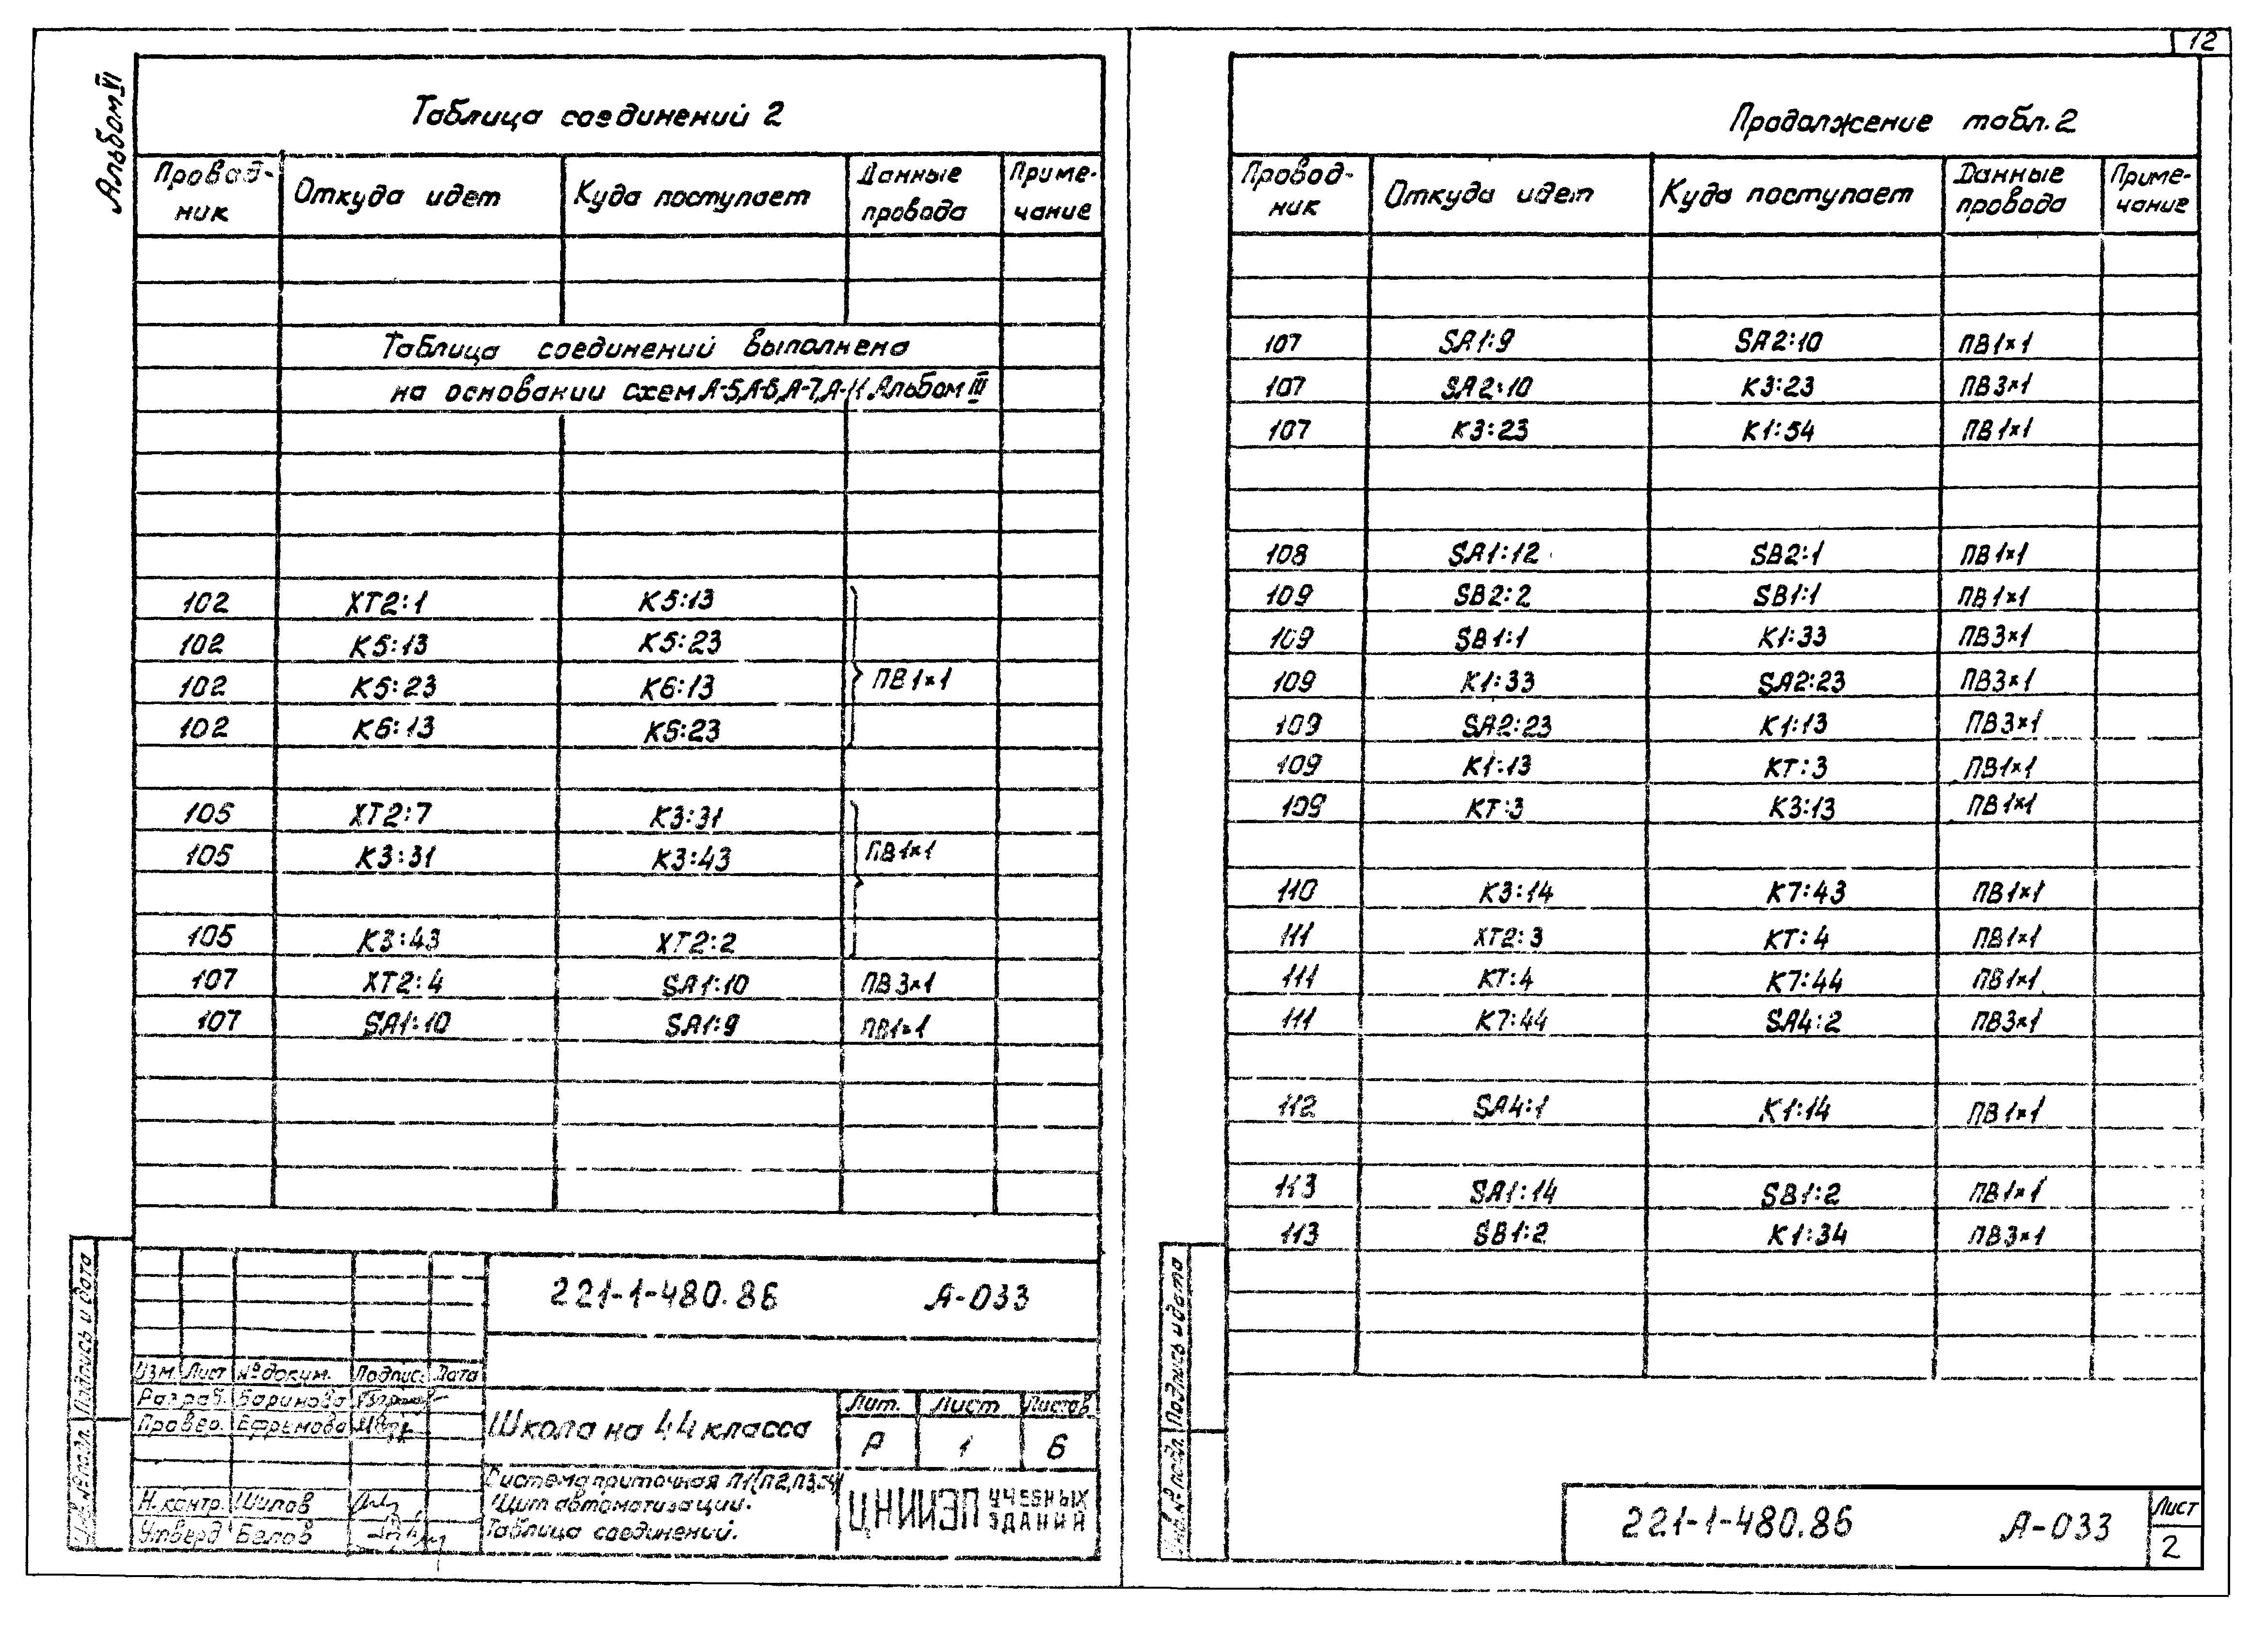 12
Альбом VI
Таблица соединений 2
Провод-ник Откуда идет Куда поступает Данные провода Приме-чание
Таблица соединений выполнена
на основании схем А-5,А-6,А-7,А-11.Альбом III
102 XT2:1 K5:13
102 K5:13 K5:23
102 K5:23 K6:13 ПВ1×1
102 K6:13 K6:23
105 XT2:7 K3:31
105 K3:31 K3:43 ПВ1×1
105 K3:43 XT2:2
107 XT2:4 SA1:10 ПВ3×1
107 SA1:10 SA1:9 ПВ1×1
221-1-480.86 А-033
Изм. Лист № докум. Подпис. Дата
Разраб. Баринова
Провер. Ефремова
Н. контр. Шилов
Утверд. Белов
Школа на 44 класса
Лит. Лист Листов
Р 1 6
Система приточная П1(П2,П3,П4)
Щит автоматизации.
Таблица соединений.
ЦНИИЭП УЧЕБНЫХ ЗДАНИЙ
Подпись и дата
Инв. № подл.
Продолжение табл. 2
Провод-ник Откуда идет Куда поступает Данные провода Приме-чание
107 SA1:9 SA2:10 ПВ1×1
107 SA2:10 K3:23 ПВ3×1
107 K3:23 K1:54 ПВ1×1
108 SA1:12 SB2:1 ПВ1×1
109 SB2:2 SB1:1 ПВ1×1
109 SB1:1 K1:33 ПВ3×1
109 K1:33 SA2:23 ПВ3×1
109 SA2:23 K1:13 ПВ3×1
109 K1:13 KT:3 ПВ1×1
109 KT:3 K3:13 ПВ1×1
110 K3:14 K7:43 ПВ1×1
111 XT2:3 KT:4 ПВ1×1
111 KT:4 K7:44 ПВ1×1
111 K7:44 SA4:2 ПВ3×1
112 SA4:1 K1:14 ПВ1×1
113 SA1:14 SB1:2 ПВ1×1
113 SB1:2 K1:34 ПВ3×1
Подпись и дата
Инв. № подл.
221-1-480.86 А-033
Лист
2